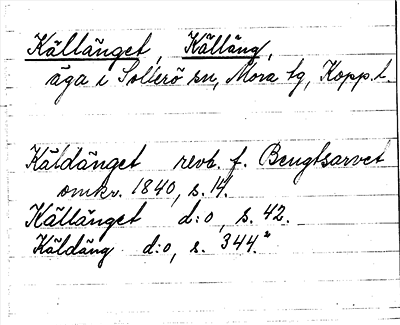 Källänget, Källäng,
äga i Sollerö sn, Mora tg, Kopp. l.
Käldänget revb. f. Bengtsarvet
omkr. 1840, s. 14.
Källänget d:o, s. 42.
Käldäng d:o, s. 344.